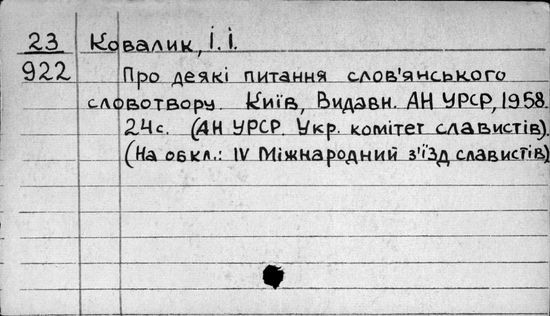 23 Ковалик, І. І.
922 Про деякі питання слов'янського
словотвору. Київ, Видавн. АН УРСР, 1958.
24с. (АН УРСР. Укр. комітет славистів).
(На обкл.: IV Міжнародний з'їзд славистів)